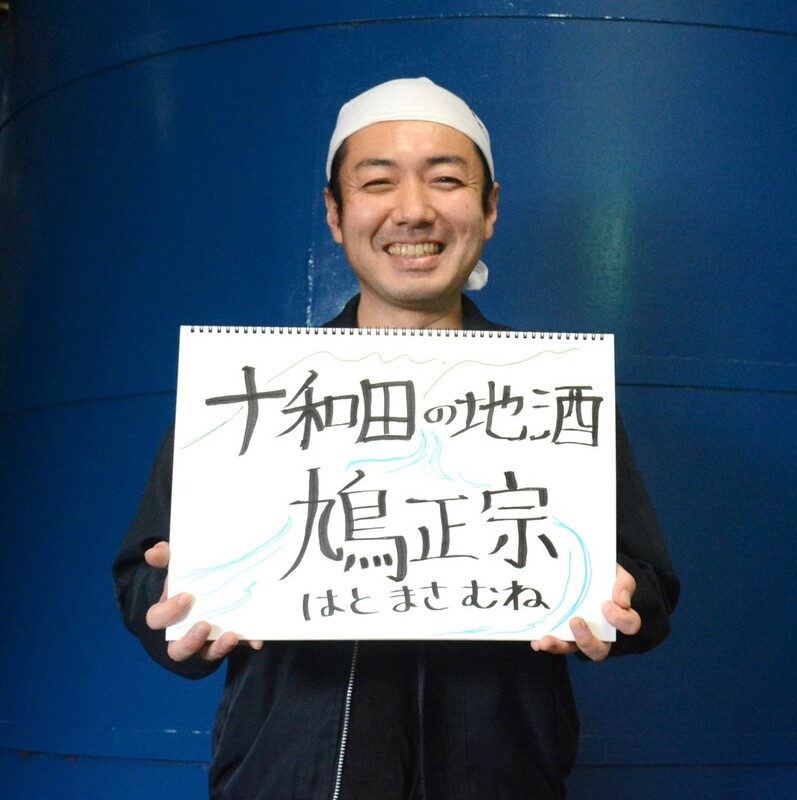 十和田の地酒
鳩正宗
はとまさむね